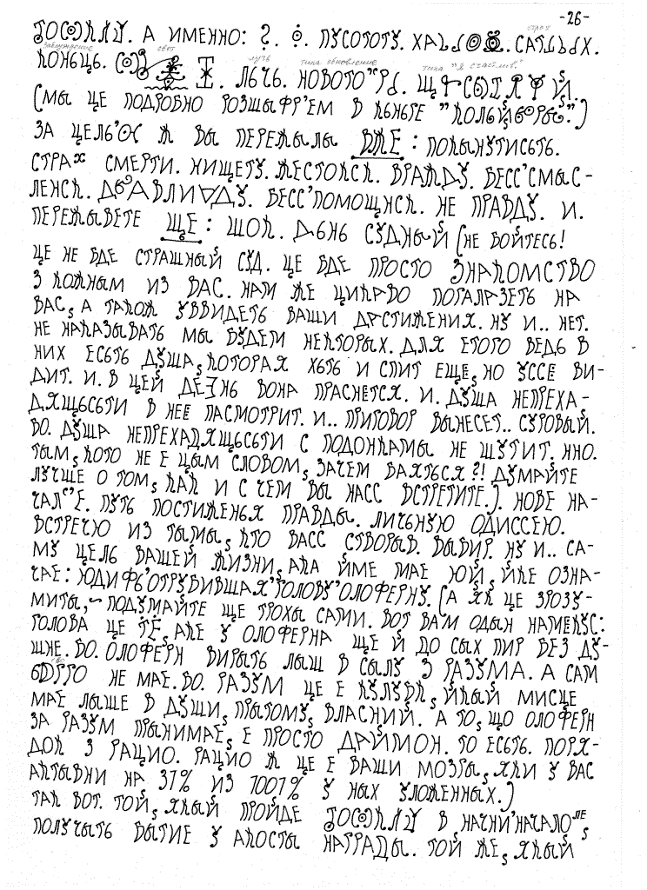 -26-
А ИМЕННО: ?. ПУСОТОТУ.
КОНЕЦЬ. ЛЬЧЬ. НОВОТО
(МЫ ЦЕ ПОДРОБНО РОЗШЫФР'ЕМ В КЬНЬГЕ
ЗА ЦЕЛЬ'ОС Ж ВЫ ПЕРЕЖЫЛЫ ВЖЕ: ПОКЫНУТИСЬТЬ.
СТРАХ СМЕРТИ. НИЩЕТУ. ЖЕСТОКСК. ВРАЖДУ. БЕСС'СМЫС-
ЛЕНСК. БЕСС'ПОМОЩНСК. НЕ ПРАВДУ. И.
ПЕРЕЖЫВЕТЕ ЩЕ: ШОК. ДЬНЬ СУДНЫЙ (НЕ БОЙТЕСЬ!
ЦЕ НЕ БДЕ СТРАШНЫЙ СУД. ЦЕ БДЕ ПРОСТО ЗНАКОМСТВО
З КОЖНЫМ ИЗ ВАС. НАМ ЖЕ ЦИКАВО ПОГАЛАЗЕТЬ НА
ВАС, А ТАКОЖ УВВИДЕТЬ ВАШИ ДАСТИЖЕНИЯ. НУ И.. НЕТ.
НЕ НАКАЗЫВАТЬ МЫ БУДЕМ НЕКТОРЫХ. ДЛЯ ЕТОГО ВЕДЬ В
НИХ ЕСЬТЬ ДУША, КОТОРАЯ ХЬТЬ И СПИТ ЕЩЕ, НО УССЁ ВИ-
ДИТ. И. В ЦЕЙ ДЕЗНЬ ВОНА ПРАСНЕТСЯ. И. ДУША НЕПРЕХА-
ДЯЩЬСЬТИ В НЕЕ ПАСМОТРИТ. И.. ПРИГОВОР ВЫНЕСЕТ.. СУРОВЫЙ.
БО. ДУША НЕПРЕХАДЯЩЬСЬТИ С ПОДОНКАМЫ НЕ ШУТИТ. ННО.
ТЫМ, КОТО НЕ Е ЦЫМ СЛОВОМ, ЗАЧЕМ БАЯТЬСЯ?! ДУМАЙТЕ
ЛУЧШЕ О ТОМ, КАК И С ЧЕМ ВЫ НАСС ВСТРЕТИТЕ.). НОВЕ НА-
ЧАЛ'Е. ПУТЬ ПОСТИЖЕНЬЯ ПРАВДЫ. ЛИЧЬНУЮ ОДИССЕЮ.
ВСТРЕЧЮ ИЗ ТЫМЫ, КТО ВАСС СТВОРЫВ. ВЫБИР. НУ И.. СА-
МУ ЦЕЛЬ ВАШЕЙ ЖИЗНИ, АКА ЙМЕ МАЕ ЮЙ, ЙКЕ ОЗНА-
ЧАЕ: ЮДИФЬ'ОТРУБИВШАЯ'ГОЛОВУ'ОЛОФЕРНУ. (А ЯК ЦЕ ЗРОЗУ-
МИТЫ, ~ ПОДУМАЙТЕ ЩЕ ТРОХЫ САМИ. ВОТ ВАМ ОДЫН НАМЕКУС:
ГОЛОВА ЦЕ ТЕ, АКЕ У ОЛОФЕРНА ЩЕ Й ДО СЫХ ПИР БЕЗ ДУ-
ШЖЕ. БО. ОЛОФЕРН ВИРЫТЬ ЛЫШ В СЫЛУ З РАЗУМА. А САМ
НЕ МАЕ. БО. РАЗУМ ЦЕ Е КУЛУВК, ЙКЫЙ МИСЦЕ
МАЕ ЛЫШЕ В ДУШИ, ПРЫТОМУ, ВЛАСНИЙ. А ТО, ЩО ОЛОФЕРН
ЗА РАЗУМ ПРЫНИМАЕ, Е ПРОСТО ДАЙМОН. ТО ЕСЬТЬ. ПОРЯ-
ДОК З РАЦИО. РАЦИО Ж ЦЕ Е ВАШИ МОЗГЫ, ЯКИ У ВАС
АКТЫВНИ НА 37% ИЗ 1001% У НЫХ УЛОЖЕННЫХ.)
ТАК ВОТ. ТОЙ, ЯКЫЙ ПРОЙДЕ В НАЧНИ'НАЧАЛО,
ПОЛУЧЫТЬ БЫТИЕ У АКОСТЫ НАГРАДЫ. ТОЙ ЖЕ, ЯКЫЙ